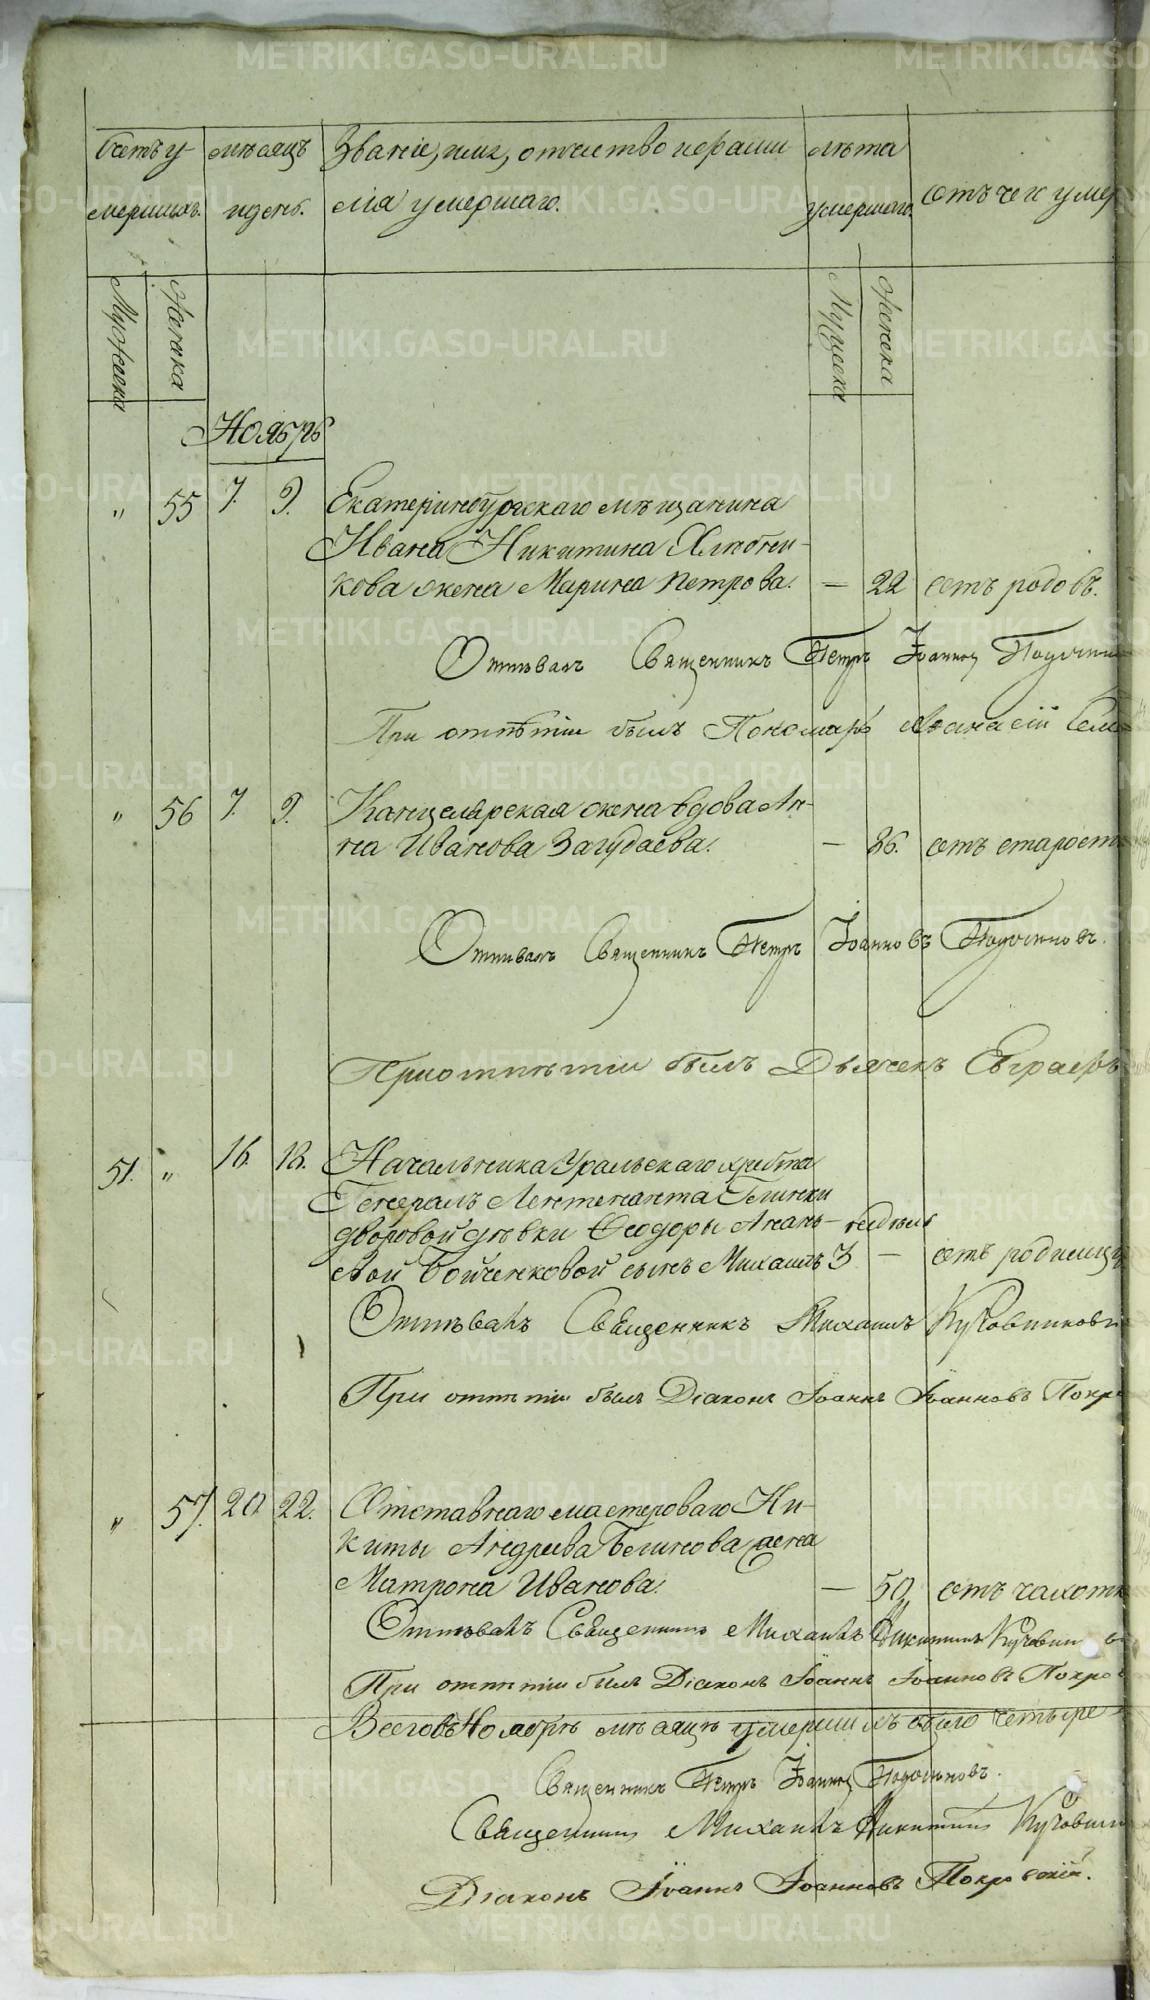 METRIKI.GASO-URAL.RU
Счетъ у- мѣсяцъ Званіе, имя, отчество и фами- лѣта
мершихъ. и день. лія умершаго. умершаго. отъ чего умер
Мужеска Женска Мужеска Женска
Ноябрь
" 55 7. 9. Екатеринбургскаго мѣщанина
Ивана Никитина Хлѣбни-
кова жена Марина Петрова. — 22 отъ родовъ.
Отпѣвалъ Священникъ Петръ Іоанновъ
При отпѣтіи былъ Пономарь Афанасій
" 56 7. 9. Канцелярская жена вдова Ан-
на Иванова Загудаева. — 86. отъ старост
Отпѣвалъ Священникъ Петръ Іоанновъ
При отпѣтіи былъ Дьячекъ Евграфъ
51. " 16. 18. Начальника Уральскаго хребта
Генералъ Лейтенанта Глинки
дворовой дѣвки Ѳеодоры Анань- недѣль
евой Бойченковой сынъ Михаилъ 3 — отъ родимц
Отпѣвалъ Священникъ Михаилъ
При отпѣтіи былъ Діаконъ Іоаннъ Іоанновъ Покр
" 57. 20. 22. Отставнаго мастероваго Ни-
киты Андреева Блинова жена
Матрона Иванова. — 50, отъ чахотк
Отпѣвалъ Священникъ Михаилъ Никитинъ
При отпѣтіи былъ Діаконъ Іоаннъ Іоанновъ Покров
Всего въ Ноябрѣ мѣсяцѣ умершихъ было четыре
Священникъ Петръ Іоанновъ
Священникъ Михаилъ Никитинъ
Діаконъ Іоаннъ Іоанновъ Покровскій.